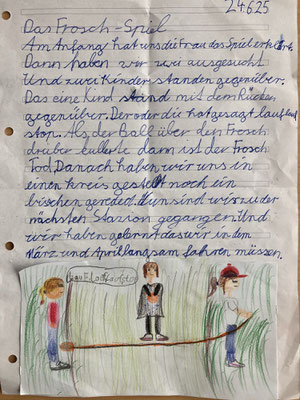 24.6.25
Das Frosch-Spiel
Am Anfang hat uns die Frau das Spiel erklert.
Dann haben wir wi ausgesucht
Und zwei Kinder standen gegenüber.
Das eine Kind stand mit dem Rücken
gegenüber. Der oder die hat gesagt lauf und
stop. Als der Ball über den Frosch
drüber kullerte dann ist der Frosch
Tod. Danach haben wir uns in
einen Kreis gestellt noch ein
bischen gereded. Nun sind wir zu der
nächsten Stazion gegangen. Und
wir haben gelernt das wir in dem
März und April langsam fahren müssen.